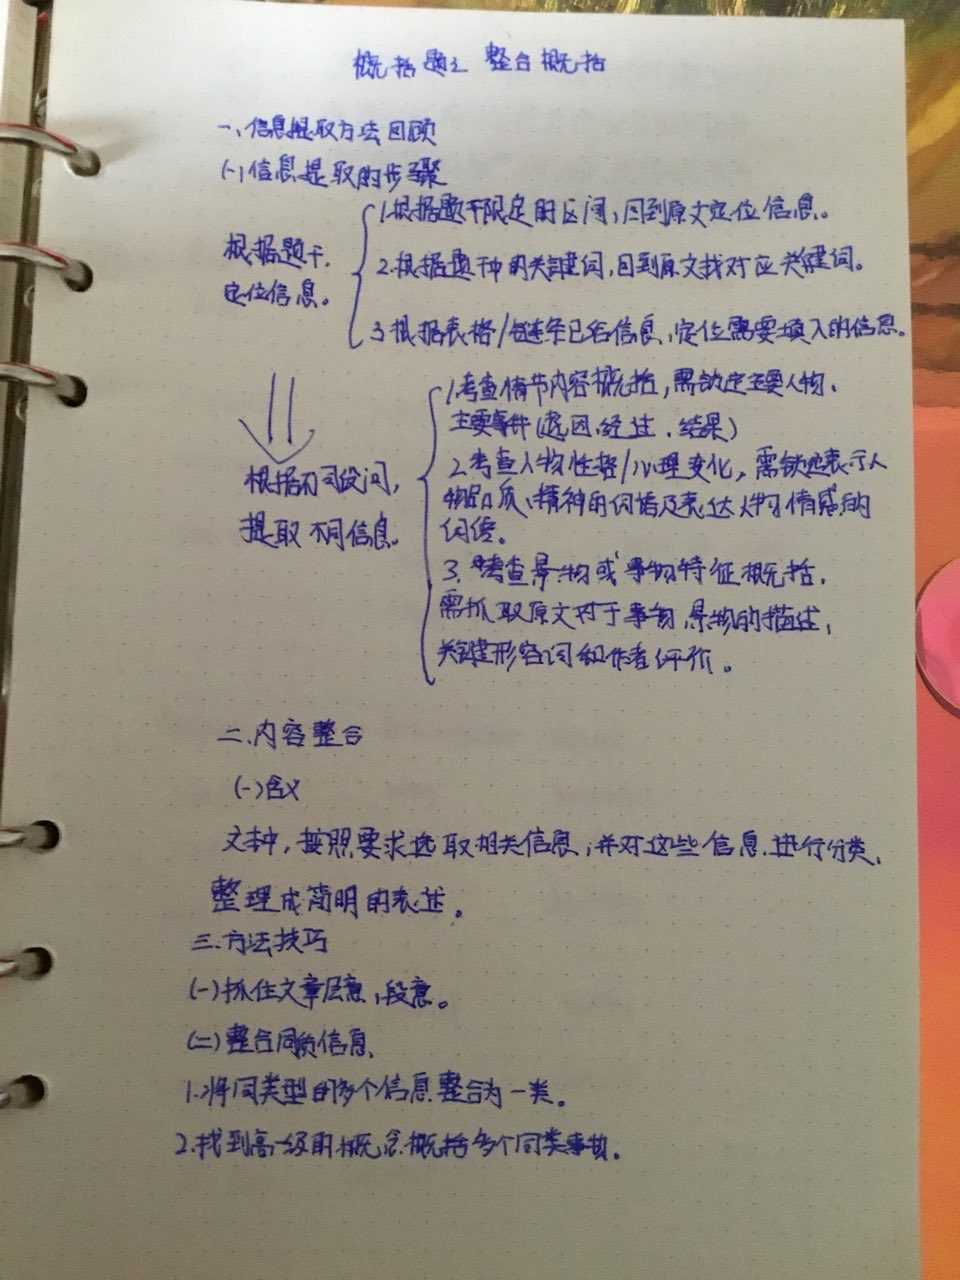 概括题之 整合概括
一、信息提取方法回顾
(一)信息提取的步骤
根据题干,
定位信息。
1.根据题干限定的区间,回到原文定位信息。
2.根据题干中的关键词,回到原文找对应关键词。
3.根据表格/链条已给信息,定位需要填入的信息。
根据不同设问,
提取不同信息。
1.考查情节内容概括,需锁定主要人物、
主要事件(起因、经过、结果)
2.考查人物性格/心理变化,需锁定表示人
物品质、精神的词语及表达人物情感的
词语。
3.考查景物或事物特征概括,
需抓取原文对于事物,景物的描述,
关键形容词和作者评价。
二、内容整合
(一)含义
文本中,按照要求选取相关信息,并对这些信息进行分类,
整理成简明的表述。
三、方法技巧
(一)抓住文章层意,段意。
(二)整合同质信息
1.将同类型的多个信息整合为一类。
2.找到高一级的概念概括多个同类事物。